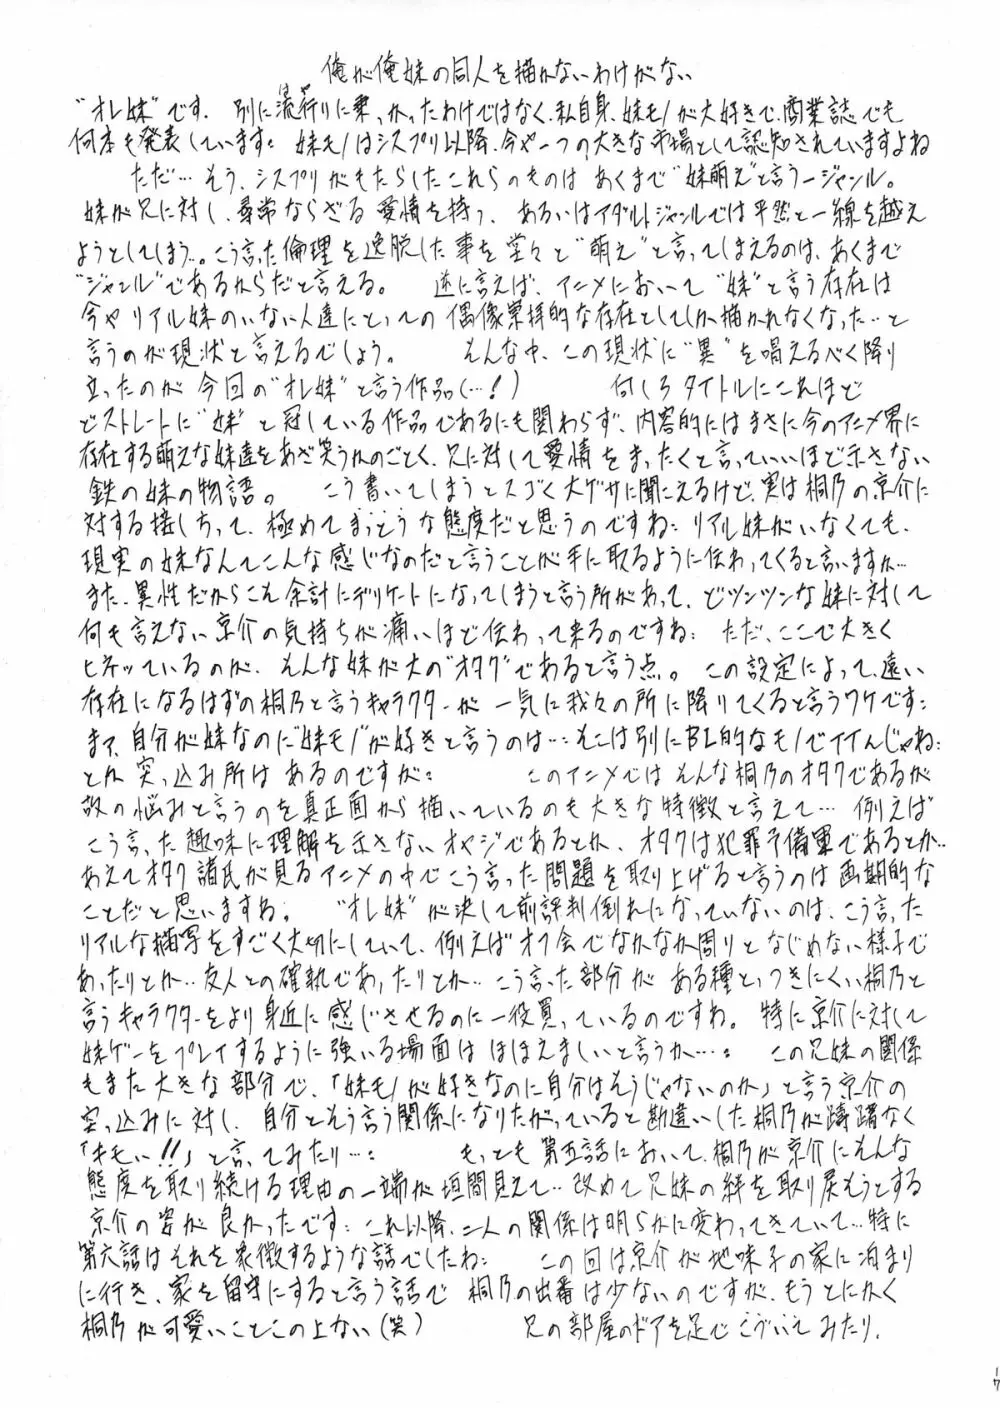 俺が俺妹の同人を描かないわけがない
"オレ妹"です. 別に流行りに乗っかったわけではなく、私自身、妹モノが大好きで、商業誌でも
はや
何本も発表しています: 妹モノはシスプリ以降、今や一つの大きな市場として認知されていますよね
ただ…そう、シスプリがもたらしたこれらのものは あくまで"妹萌え"と言う一ジャンル。
妹が兄に対し、尋常ならざる愛情を持つ、あるいはアダルトジャンルでは平然と一線を越え
ようとしてしまう…。こう言った倫理を逸脱した事を堂々と"萌え"と言ってしまえるのは、あくまで
"ジャンル"であるからだと言える。 逆に言えば、アニメにおいて"妹"と言う存在は
今やリアル妹のいない人達にとっての偶像崇拝的な存在としてしか描かれなくなった…と
言うのが現状と言えるでしょう。 そんな中、この現状に"異"を唱えるべく降り
立ったのが今回の"オレ妹"と言う作品(…!) 何しろタイトルにこれほど
どストレートに"妹"と冠している作品であるにも関わらず、内容的にはまさに今のアニメ界に
存在する萌えな妹達をあざ笑うかのごとく、兄に対して愛情をまったくと言っていいほど示さない
鉄の妹の物語。 こう書いてしまうとスゴく大ゲサに聞こえるけど、実は桐乃の京介に
対する接し方って、極めてまっとうな態度だと思うのですね: リアル妹がいなくても、
現実の妹なんてこんな感じなのだと言うことが手に取るように伝わってくると言いますか…
また、異性だからこそ余計にデリケートになってしまうと言う所があって、どツンツンな妹に対して
何も言えない京介の気持ちが痛いほど伝わって来るのですね: ただ、ここで大きく
ヒネッているのが、そんな妹が大の"オタク"であると言う点。 この設定によって、遠い
存在になるはずの桐乃と言うキャラクターが一気に我々の所に降りてくると言うワケです:
まア、自分が妹なのに"妹モノ"が好きと言うのは…: そこは別にBL的なモノでイイんじゃね:
とか突っ込み所はあるのですが: このアニメではそんな桐乃のオタクであるが
故の悩みと言うのを真正面から描いているのも大きな特徴と言えて… 例えば
こう言った趣味に理解を示さないオヤジであるとか、オタクは犯罪予備軍であるとか…
あえてオタク諸氏が見るアニメの中でこう言った問題を取り上げると言うのは画期的な
ことだと思いますね。 "オレ妹"が決して前評判倒れになっていないのは、こう言った
リアルな描写をすごく大切にしていて、例えばオフ会でなかなか周りとなじめない様子で
あったりとか…友人との確執であったりとか…こう言った部分がある種とっつきにくい桐乃と
言うキャラクターをより身近に感じさせるのに一役買っているのですね。 特に京介に対して
妹ゲーをプレイするように強いる場面はほほえましいと言うか…: この兄妹の関係
もまた大きな部分で、「妹モノが好きなのに自分はそうじゃないのか」と言う京介の
突っ込みに対し、自分とそう言う関係になりたがっていると勘違いした桐乃が躊躇なく
「キモい!!」と言ってみたり…: もっとも第五話において、桐乃が京介にそんな
態度を取り続ける理由の一端が垣間見えて…改めて兄妹の絆を取り戻もうとする
京介の姿が良かったです: これ以降、二人の関係は明らかに変わってきていて…特に
第六話はそれを象徴するような話でしたね: この回は京介が地味子の家に泊まり
に行き、家を留守にすると言う話で桐乃の出番は少ないのですが、もうとにかく
桐乃が可愛いことこの上ない(笑) 兄の部屋のドアを足でこづいてみたり、
17